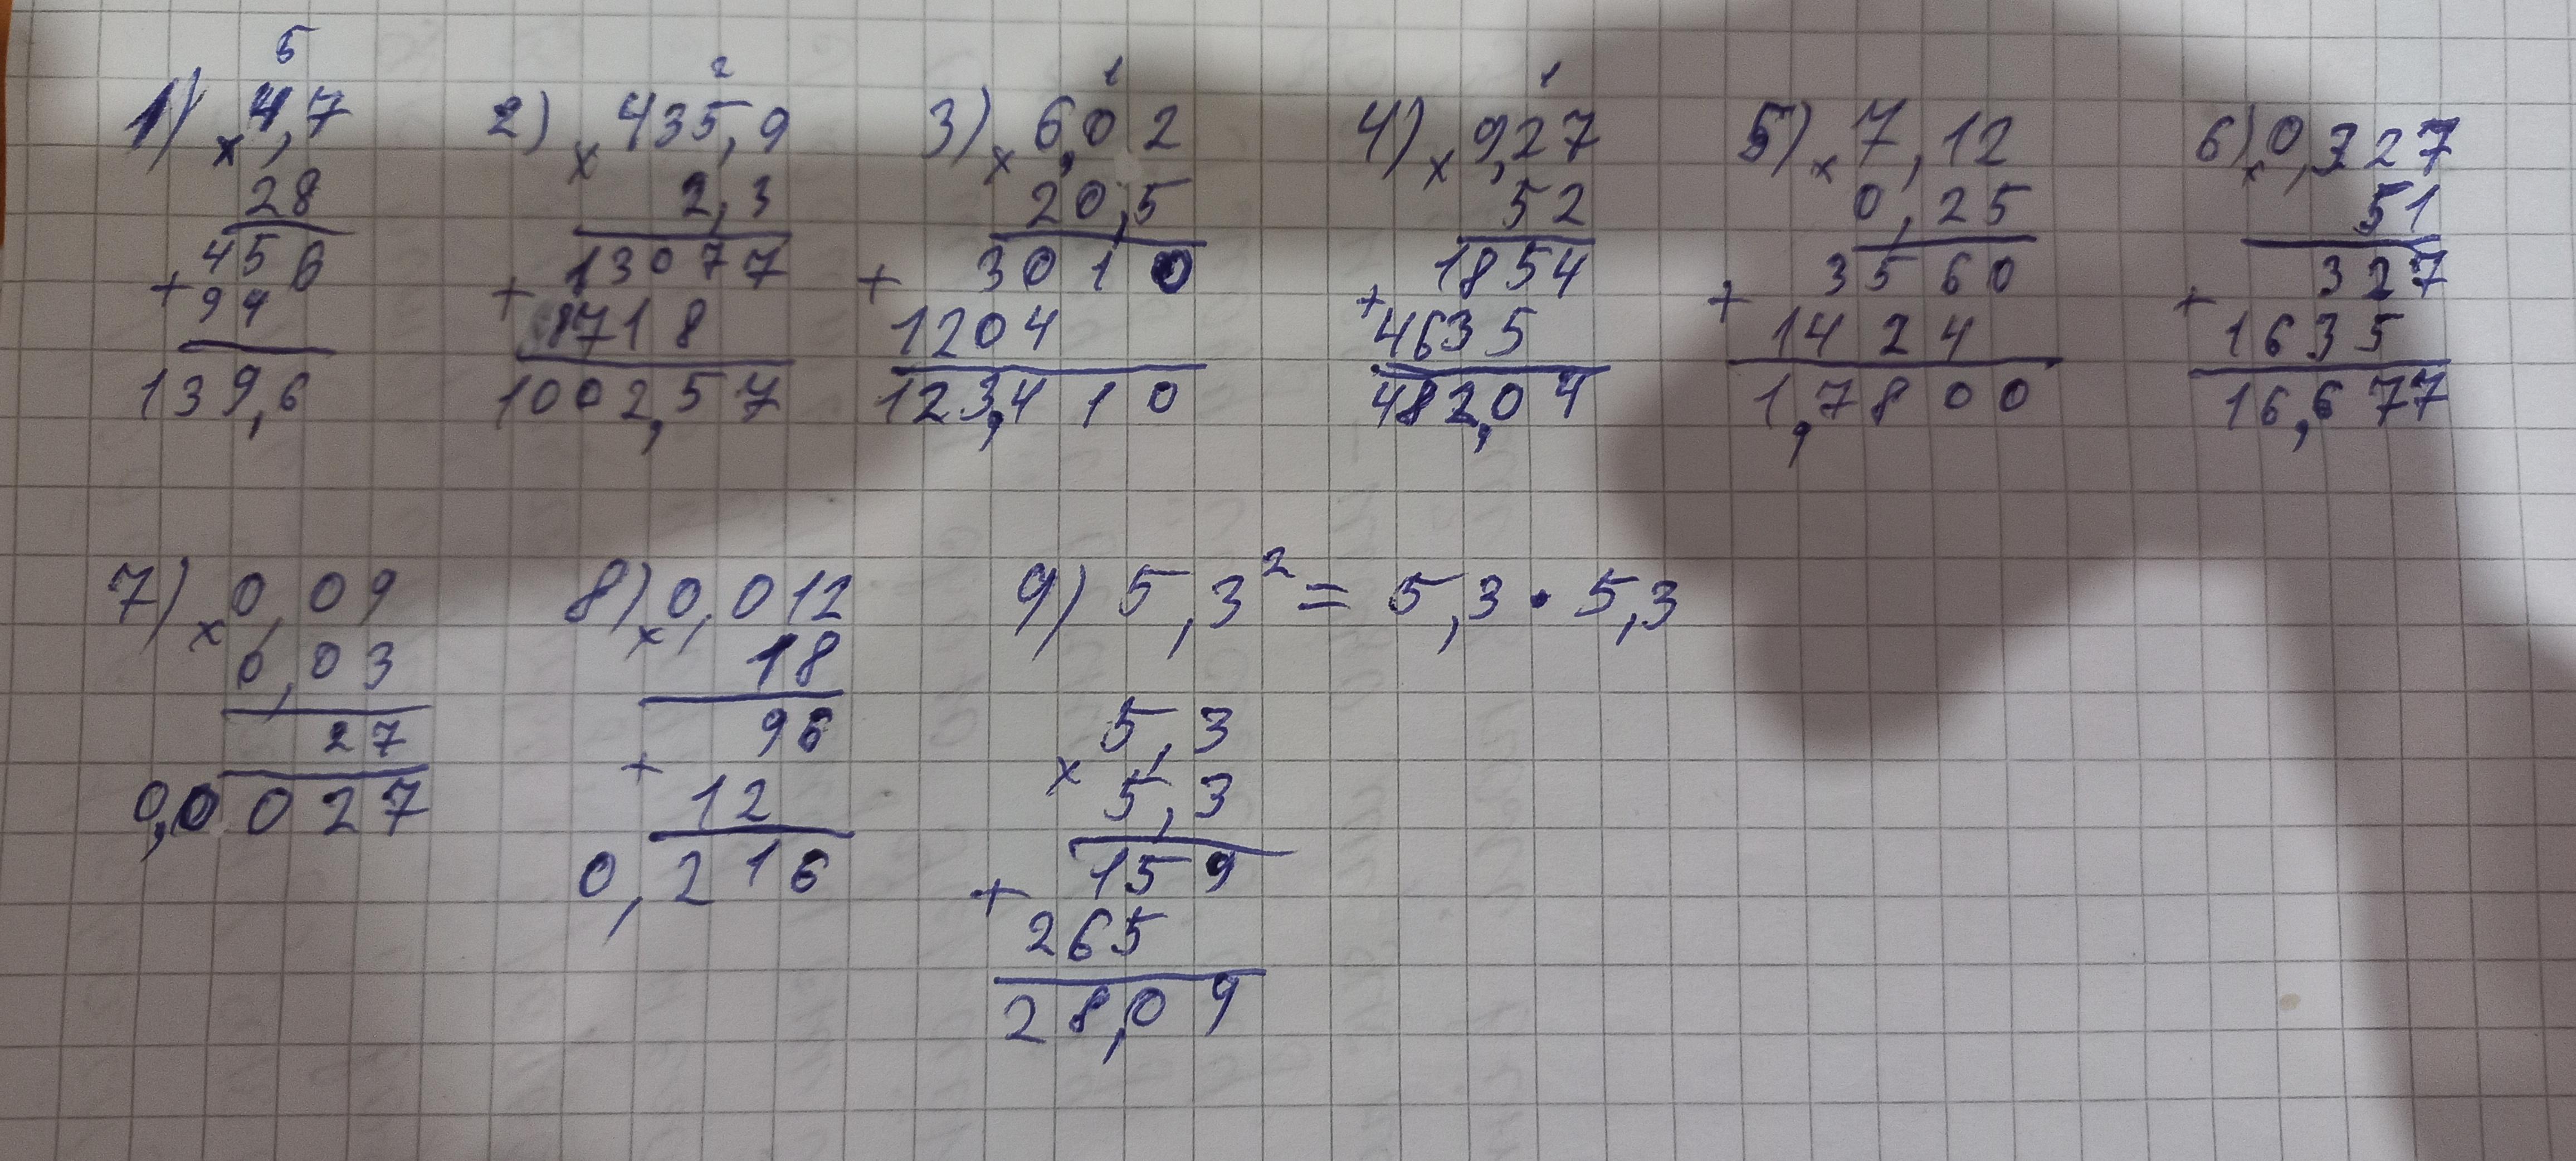 5
1) × 4,7
28
+ 456
94
139,6
2
2) × 435,9
2,3
+ 13077
8718
1002,57
1
3) × 6,02
20,5
+ 3010
1204
123,410
1
4) × 9,27
52
+ 1854
4635
482,04
5) × 7,12
0,25
+ 3560
1424
1,7800
6) × 0,327
51
+ 327
1635
16,677
7) × 0,09
0,03
27
0,0027
8) × 0,012
18
+ 96
12
0,216
9) 5,3² = 5,3 • 5,3
× 5,3
5,3
+ 159
265
28,09